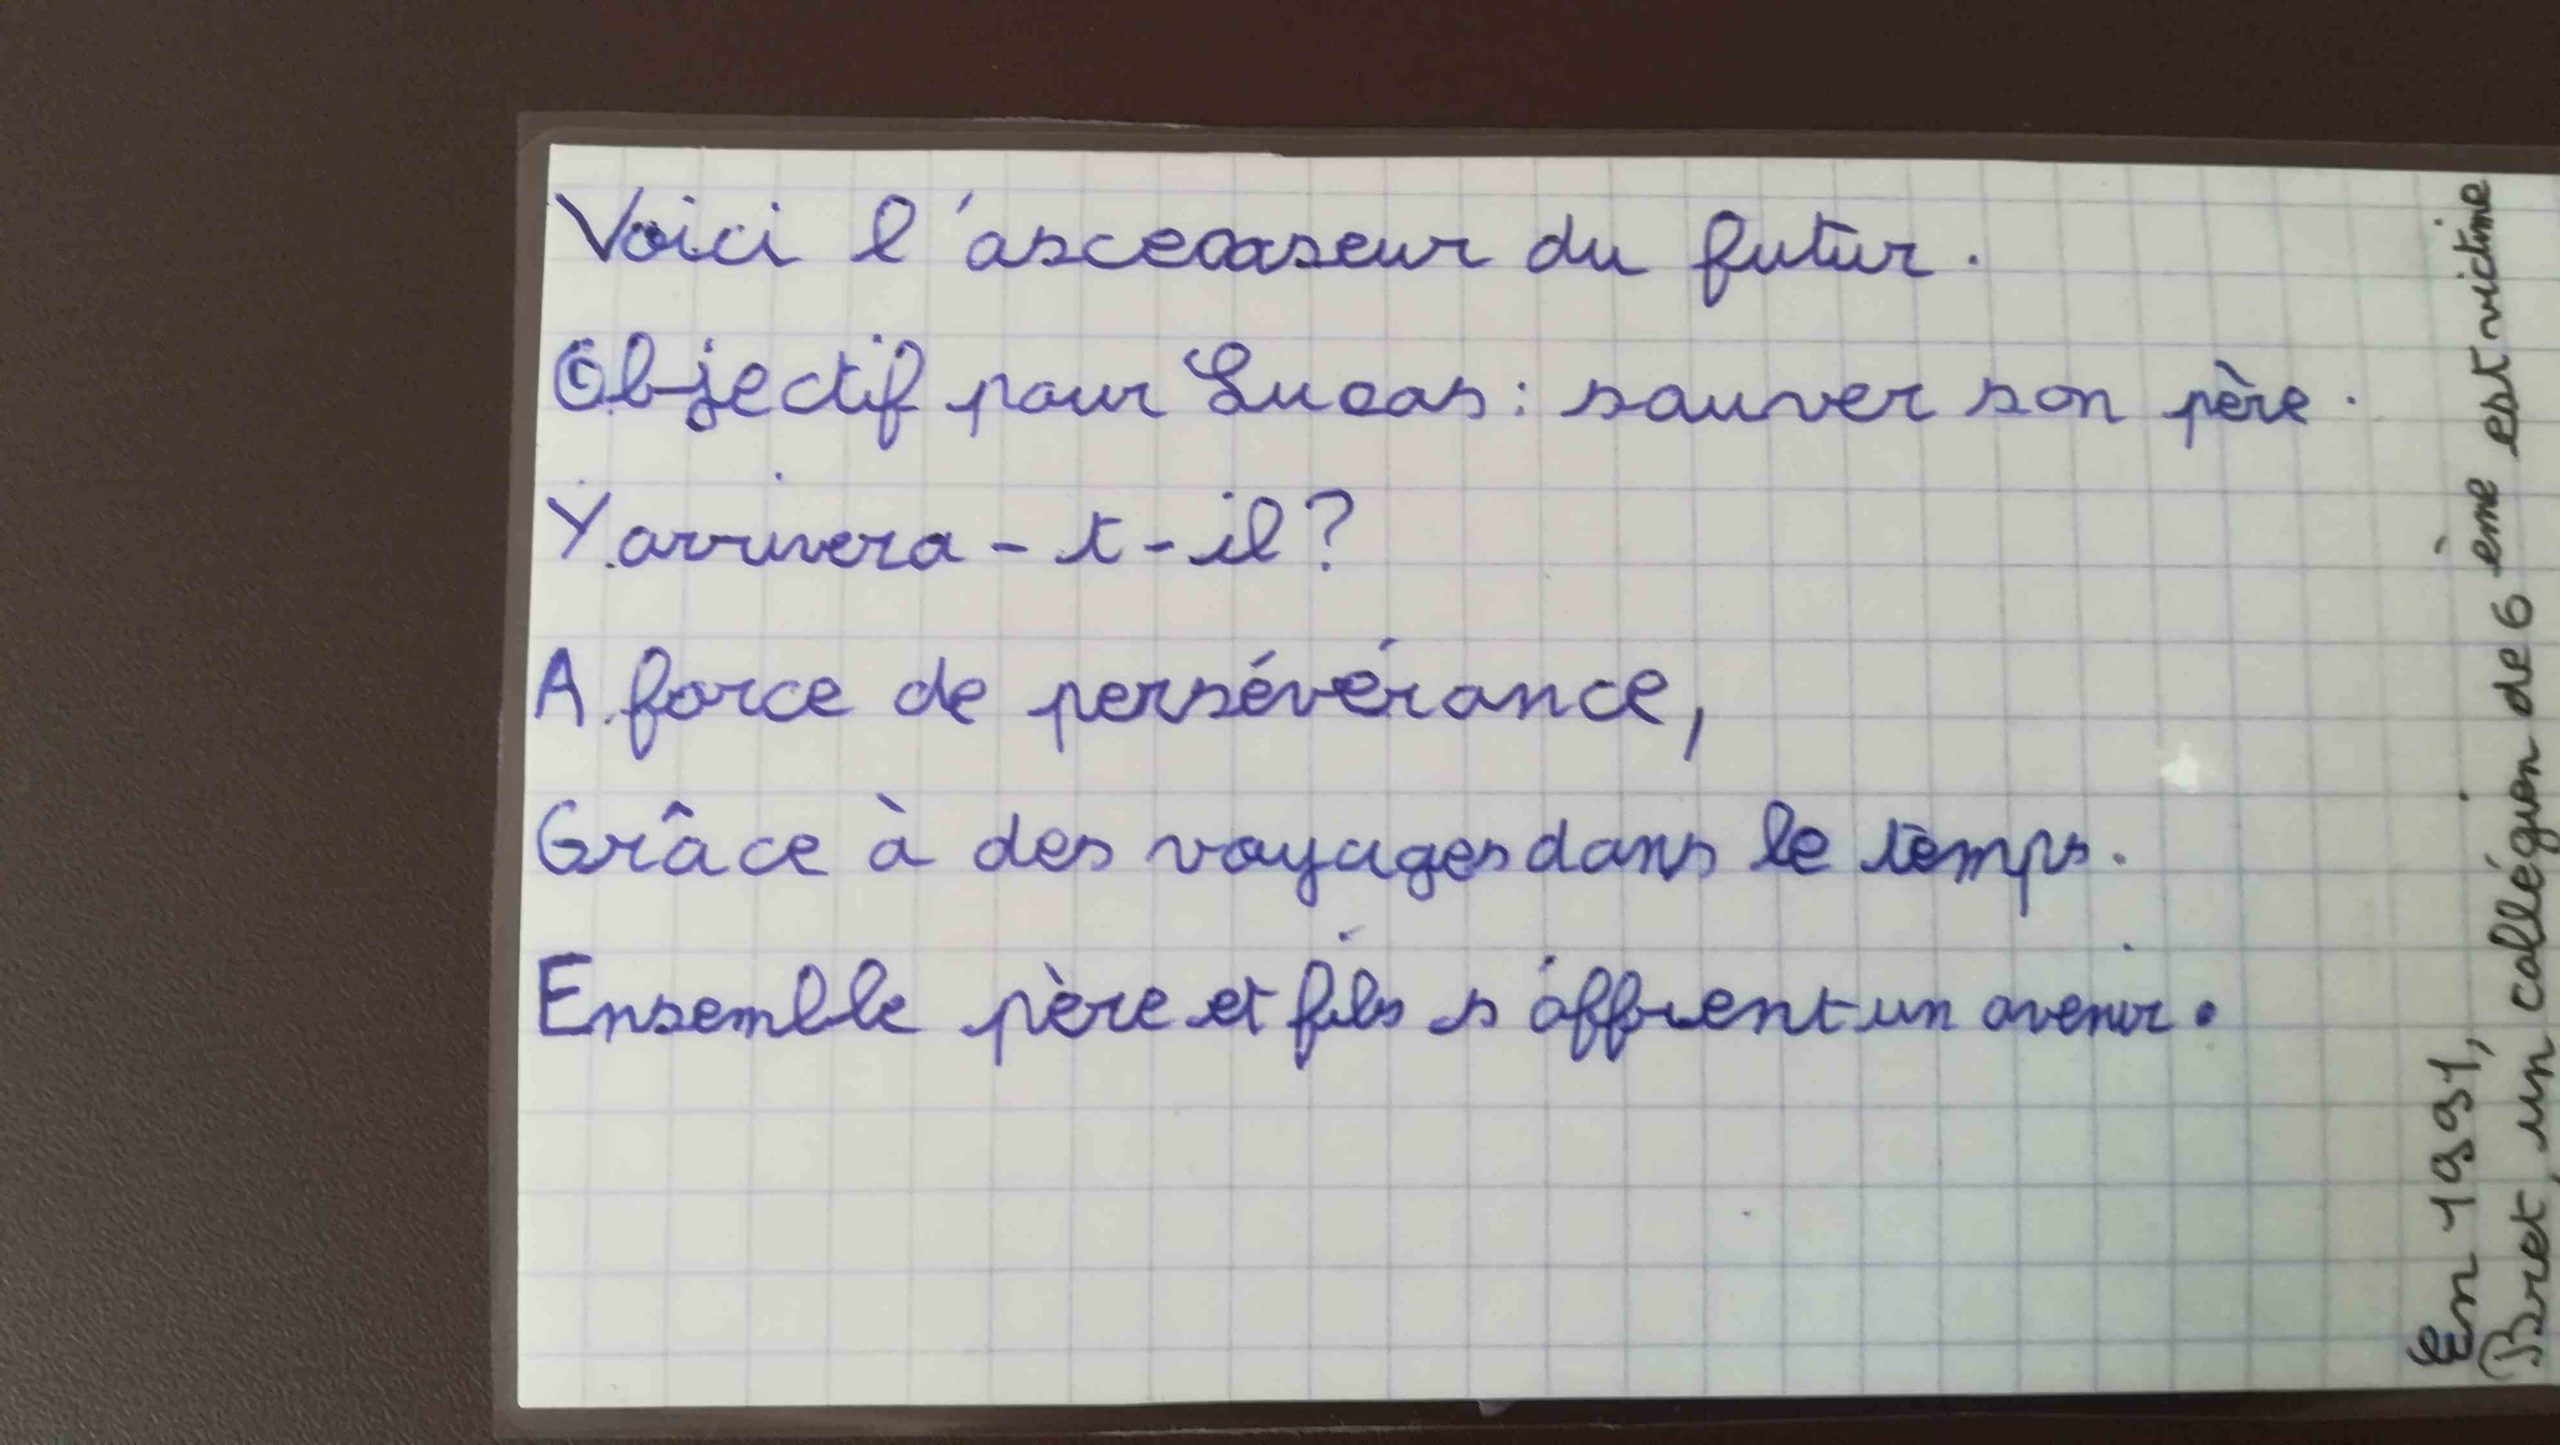 Voici l'ascenseur du futur.
Objectif pour Lucas : sauver son père.
Y arrivera-t-il ?
A force de persévérance,
Grâce à des voyages dans le temps.
Ensemble père et fils s'offrent un avenir.
En 1991,
Bret, un collégien de 6 ème est victime